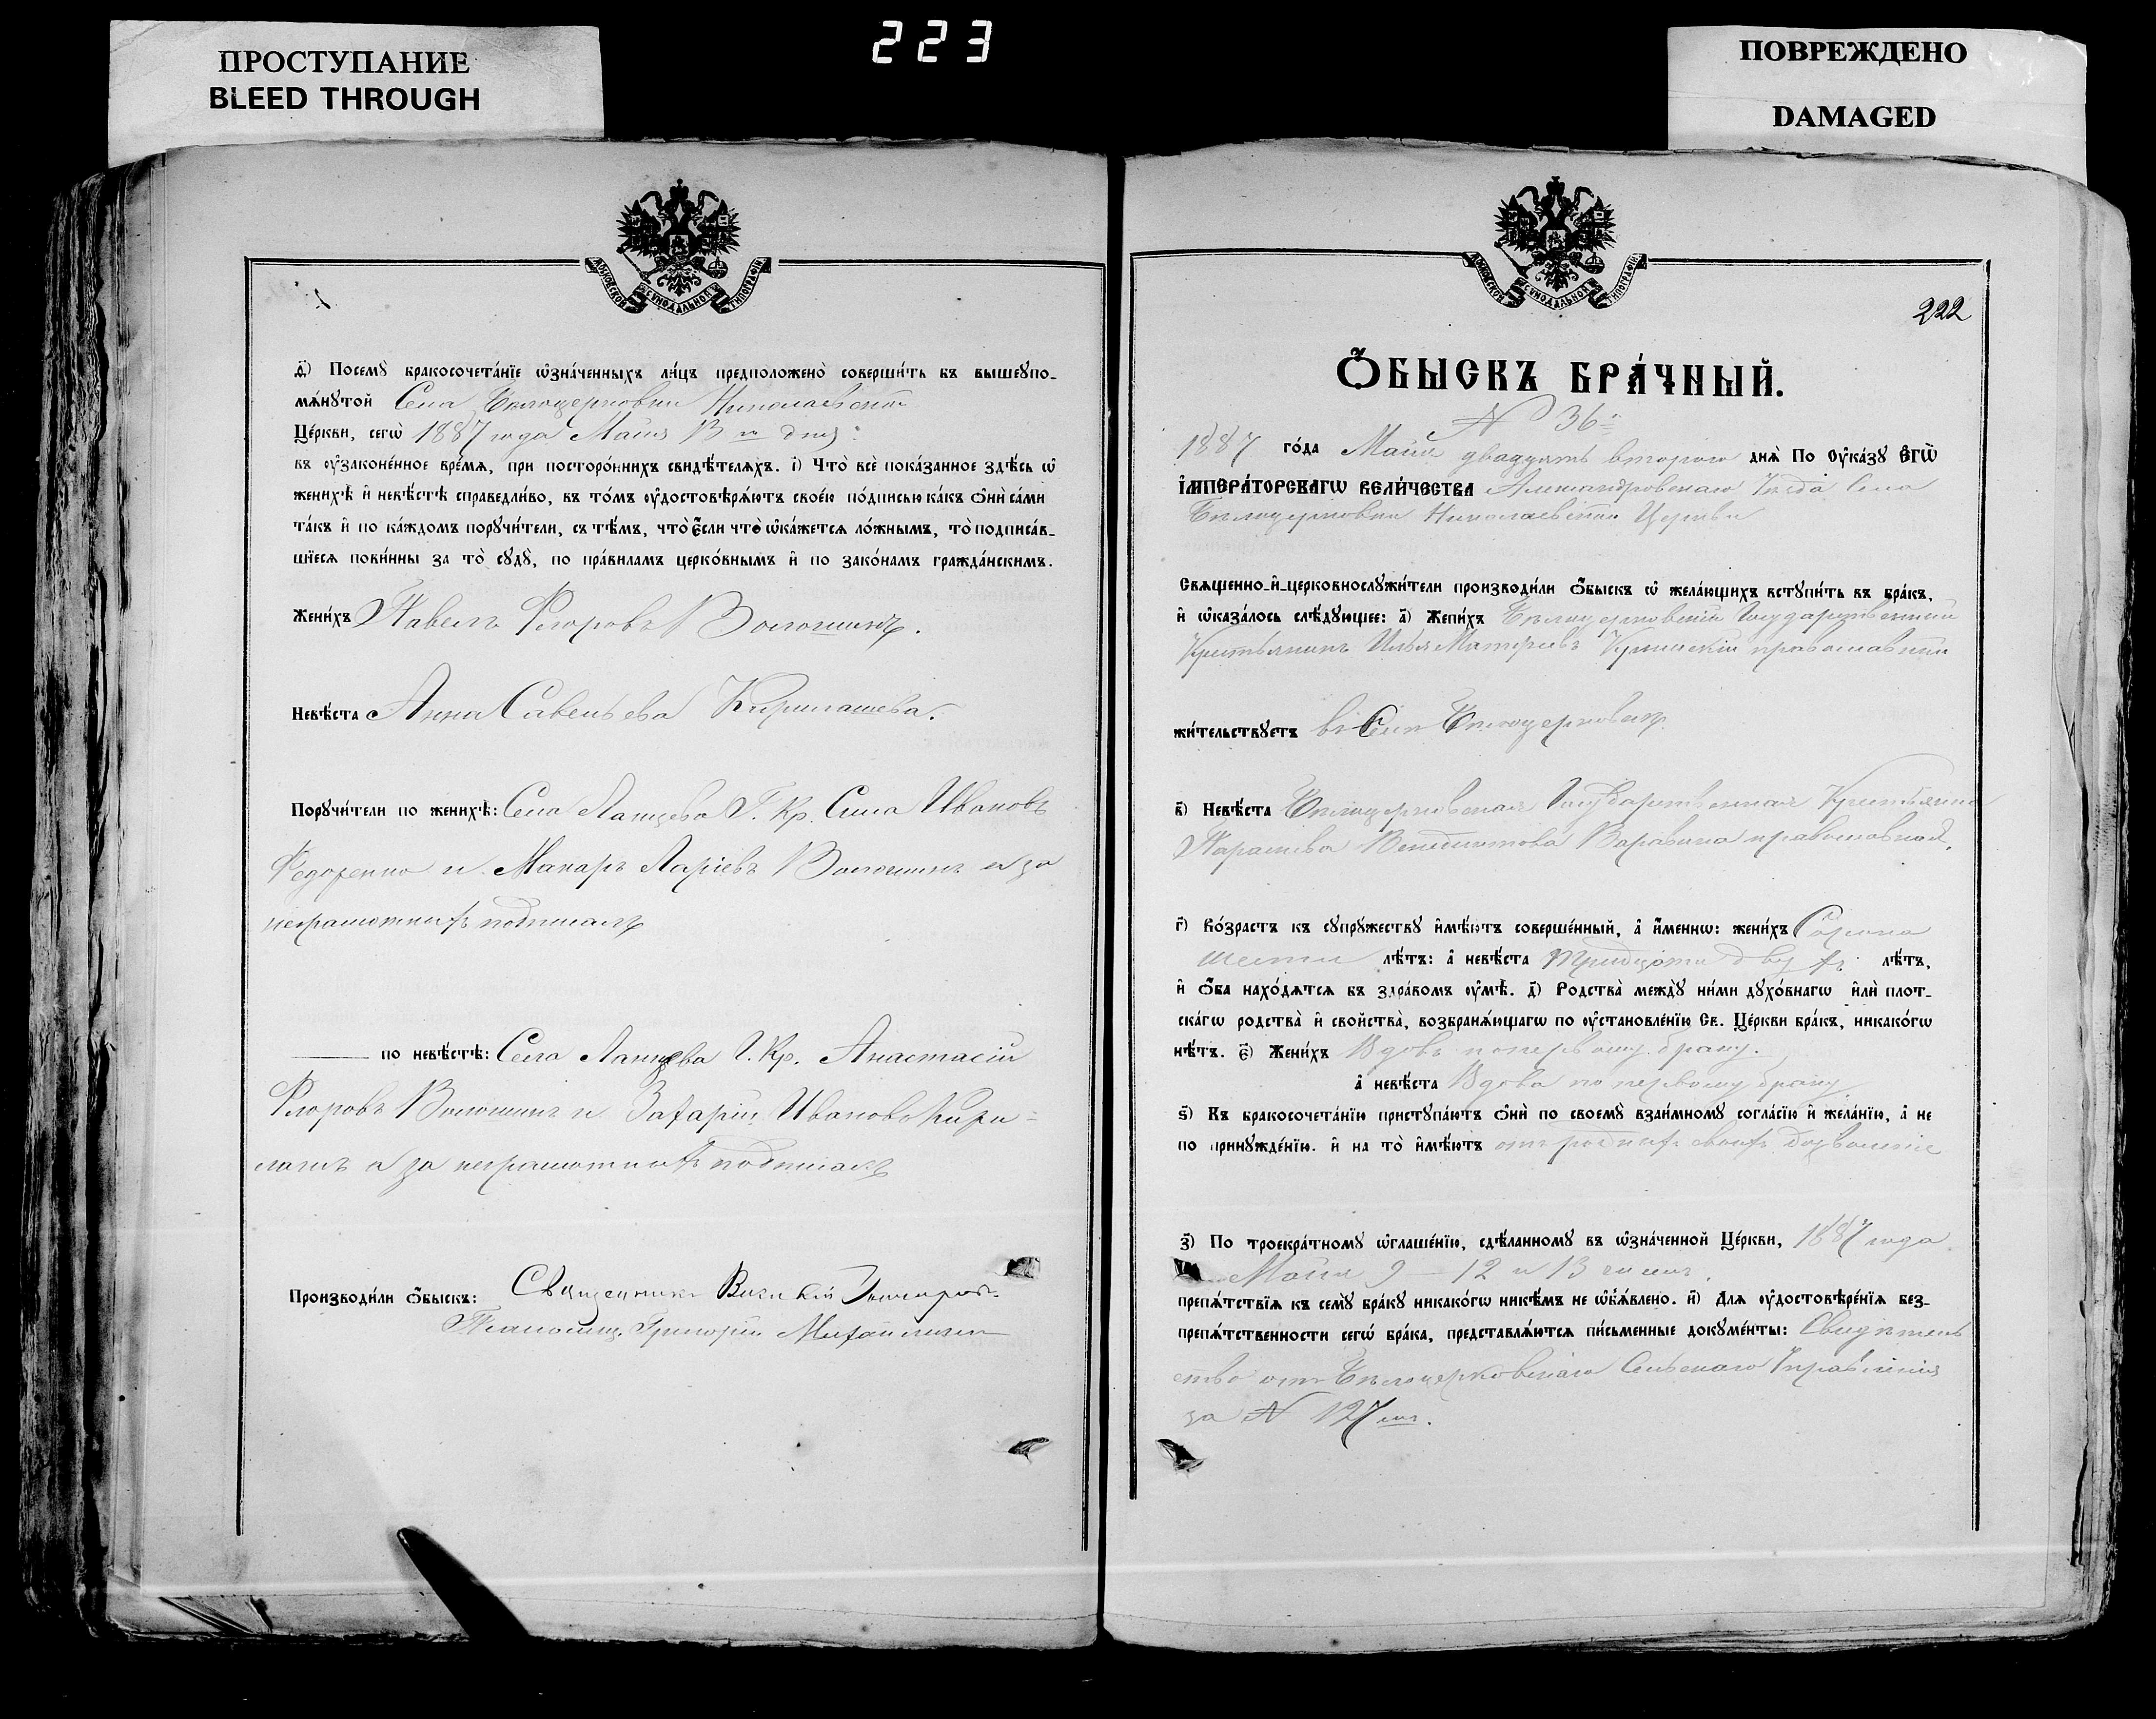 223
ПРОСТУПАНИЕ
BLEED THROUGH
ПОВРЕЖДЕНО
DAMAGED
МОСКОВСКОЙ СѴНОДАЛЬНОЙ ТИПОГРАФІИ
д҃) Посемꙋ̀ бракосочета́нїе ѡ҆зна́ченныхъ ли́цъ предположено̀ соверши́ть въ вышеꙋпо-
мѧ́нꙋтой Села Бѣлоцерковки Николаевской
Це́ркви, сегѡ̀ 1887 года Маія 13 го дня
въ ᲂу҆законе́нное вре́мѧ, при посторо́ннихъ свидѣ́телѧхъ. і҃) Что̀ всѐ пока́занное здѣ́сь ѡ҆
женихѣ̀ и҆ невѣ́стѣ справедли́во, въ то́мъ ᲂу҆достовѣрѧ́ютъ свое́ю по́дписью ка́къ ѻ҆нѝ са́ми
та́къ и҆ по ка́ждомъ порꙋчи́тели, съ тѣ́мъ, что̀ є҆́сли что̀ ѡ҆ка́жетсѧ ло́жнымъ, то̀ подписа́в-
шїесѧ пови́нны за то̀ сꙋдꙋ̀, по пра́виламъ церко́внымъ и҆ по зако́намъ гражда́нскимъ.
Жени́хъ Павелъ Флоровъ Волошинъ.
Невѣ́ста Анна Савельева Кирилашева.
Порꙋчи́тели по женихѣ̀: Села Ланцева Г. Кр. Сила Ивановъ
Федоренко и Макаръ Ларіевъ Волошинъ а за
неграмотныхъ подписалъ
по невѣ́стѣ: Села Ланцева Г. Кр. Анастасій
Флоровъ Волошинъ и Захарій Ивановъ Кири-
лашъ а за неграмотныхъ подписалъ
Производи́ли ѻ҆́быскъ: Священникъ
Псаломщ. Григорій
МОСКОВСКОЙ СѴНОДАЛЬНОЙ ТИПОГРАФІИ
222
Ѻ҆́БЫСКЪ БРА́ЧНЫЙ.
N 36
1887 го́да Маія двадцать второго днѧ̀ По ᲂу҆ка́зꙋ Є҆ГѠ̀
І҆МПЕРА́ТОРСКАГѠ ВЕЛИ́ЧЕСТВА Александровскаго Уѣзда Села
Бѣлоцерковки Николаевской Церкви
Свѧщенно-и҆-церковнослꙋжи́тели производи́ли ѻ҆́быскъ ѡ҆ жела́ющихъ встꙋпи́ть въ бра́къ,
и҆ ѡ҆каза́лось слѣ́дꙋющее: а҃) Жени́хъ Бѣлоцерковскій Государственный
Крестьянинъ Илья Матфіевъ православный
жи́тельствꙋетъ въ Селѣ Бѣлоцерковкѣ
в҃) Невѣ́ста Бѣлоцерковская Государственная Крестьянка
Параскева Венедиктова Варавина православная,
г҃) Во́зрастъ къ сꙋпрꙋ́жествꙋ и҆мѣ́ютъ соверше́нный, а҆ и҆́меннѡ: жени́хъ Сорока
шести лѣ́тъ: а҆ невѣ́ста тридцати двухъ лѣ́тъ,
и҆ ѻ҆́ба нахо́дѧтсѧ въ здра́вомъ ᲂу҆мѣ̀. д҃) Родства̀ междꙋ̀ ни́ми дꙋхо́внагѡ и҆лѝ плот-
ска́гѡ родства̀ и҆ свойства̀, возбранѧ́ющагѡ по ᲂу҆становле́нїю Св. Це́ркви бра́къ, никако́гѡ
нѣ́тъ. є҃) Жени́хъ Вдовъ по первому браку.
а҆ невѣ́ста Вдова по первому браку
ѕ҃) Къ бракосочета́нїю пристꙋпа́ютъ ѻ҆нѝ по своемꙋ̀ взаи́мномꙋ согла́сїю и҆ жела́нїю, а҆ не
по принꙋжде́нїю. и҆ на то̀ и҆мѣ́ютъ отъ родныхъ своихъ дозволеніе
з҃) По троекра́тномꙋ ѡ҆глаше́нїю, сдѣ́ланномꙋ въ ѡ҆зна́ченной Це́ркви, 1887 года
Маія 9 — 12 и 13 чиселъ,
препѧ́тствїѧ къ семꙋ̀ бра́кꙋ никако́гѡ никѣ́мъ не ѡ҆б̾ѧ́влено. и҃) Длѧ ᲂу҆достовѣре́нїѧ без-
препѧ́тственности сегѡ̀ бра́ка, представлѧ́ютсѧ пи́сьменные докꙋме́нты: Свидѣтель
ство отъ Бѣлоцерковскаго Сельскаго Управленія
за N 127